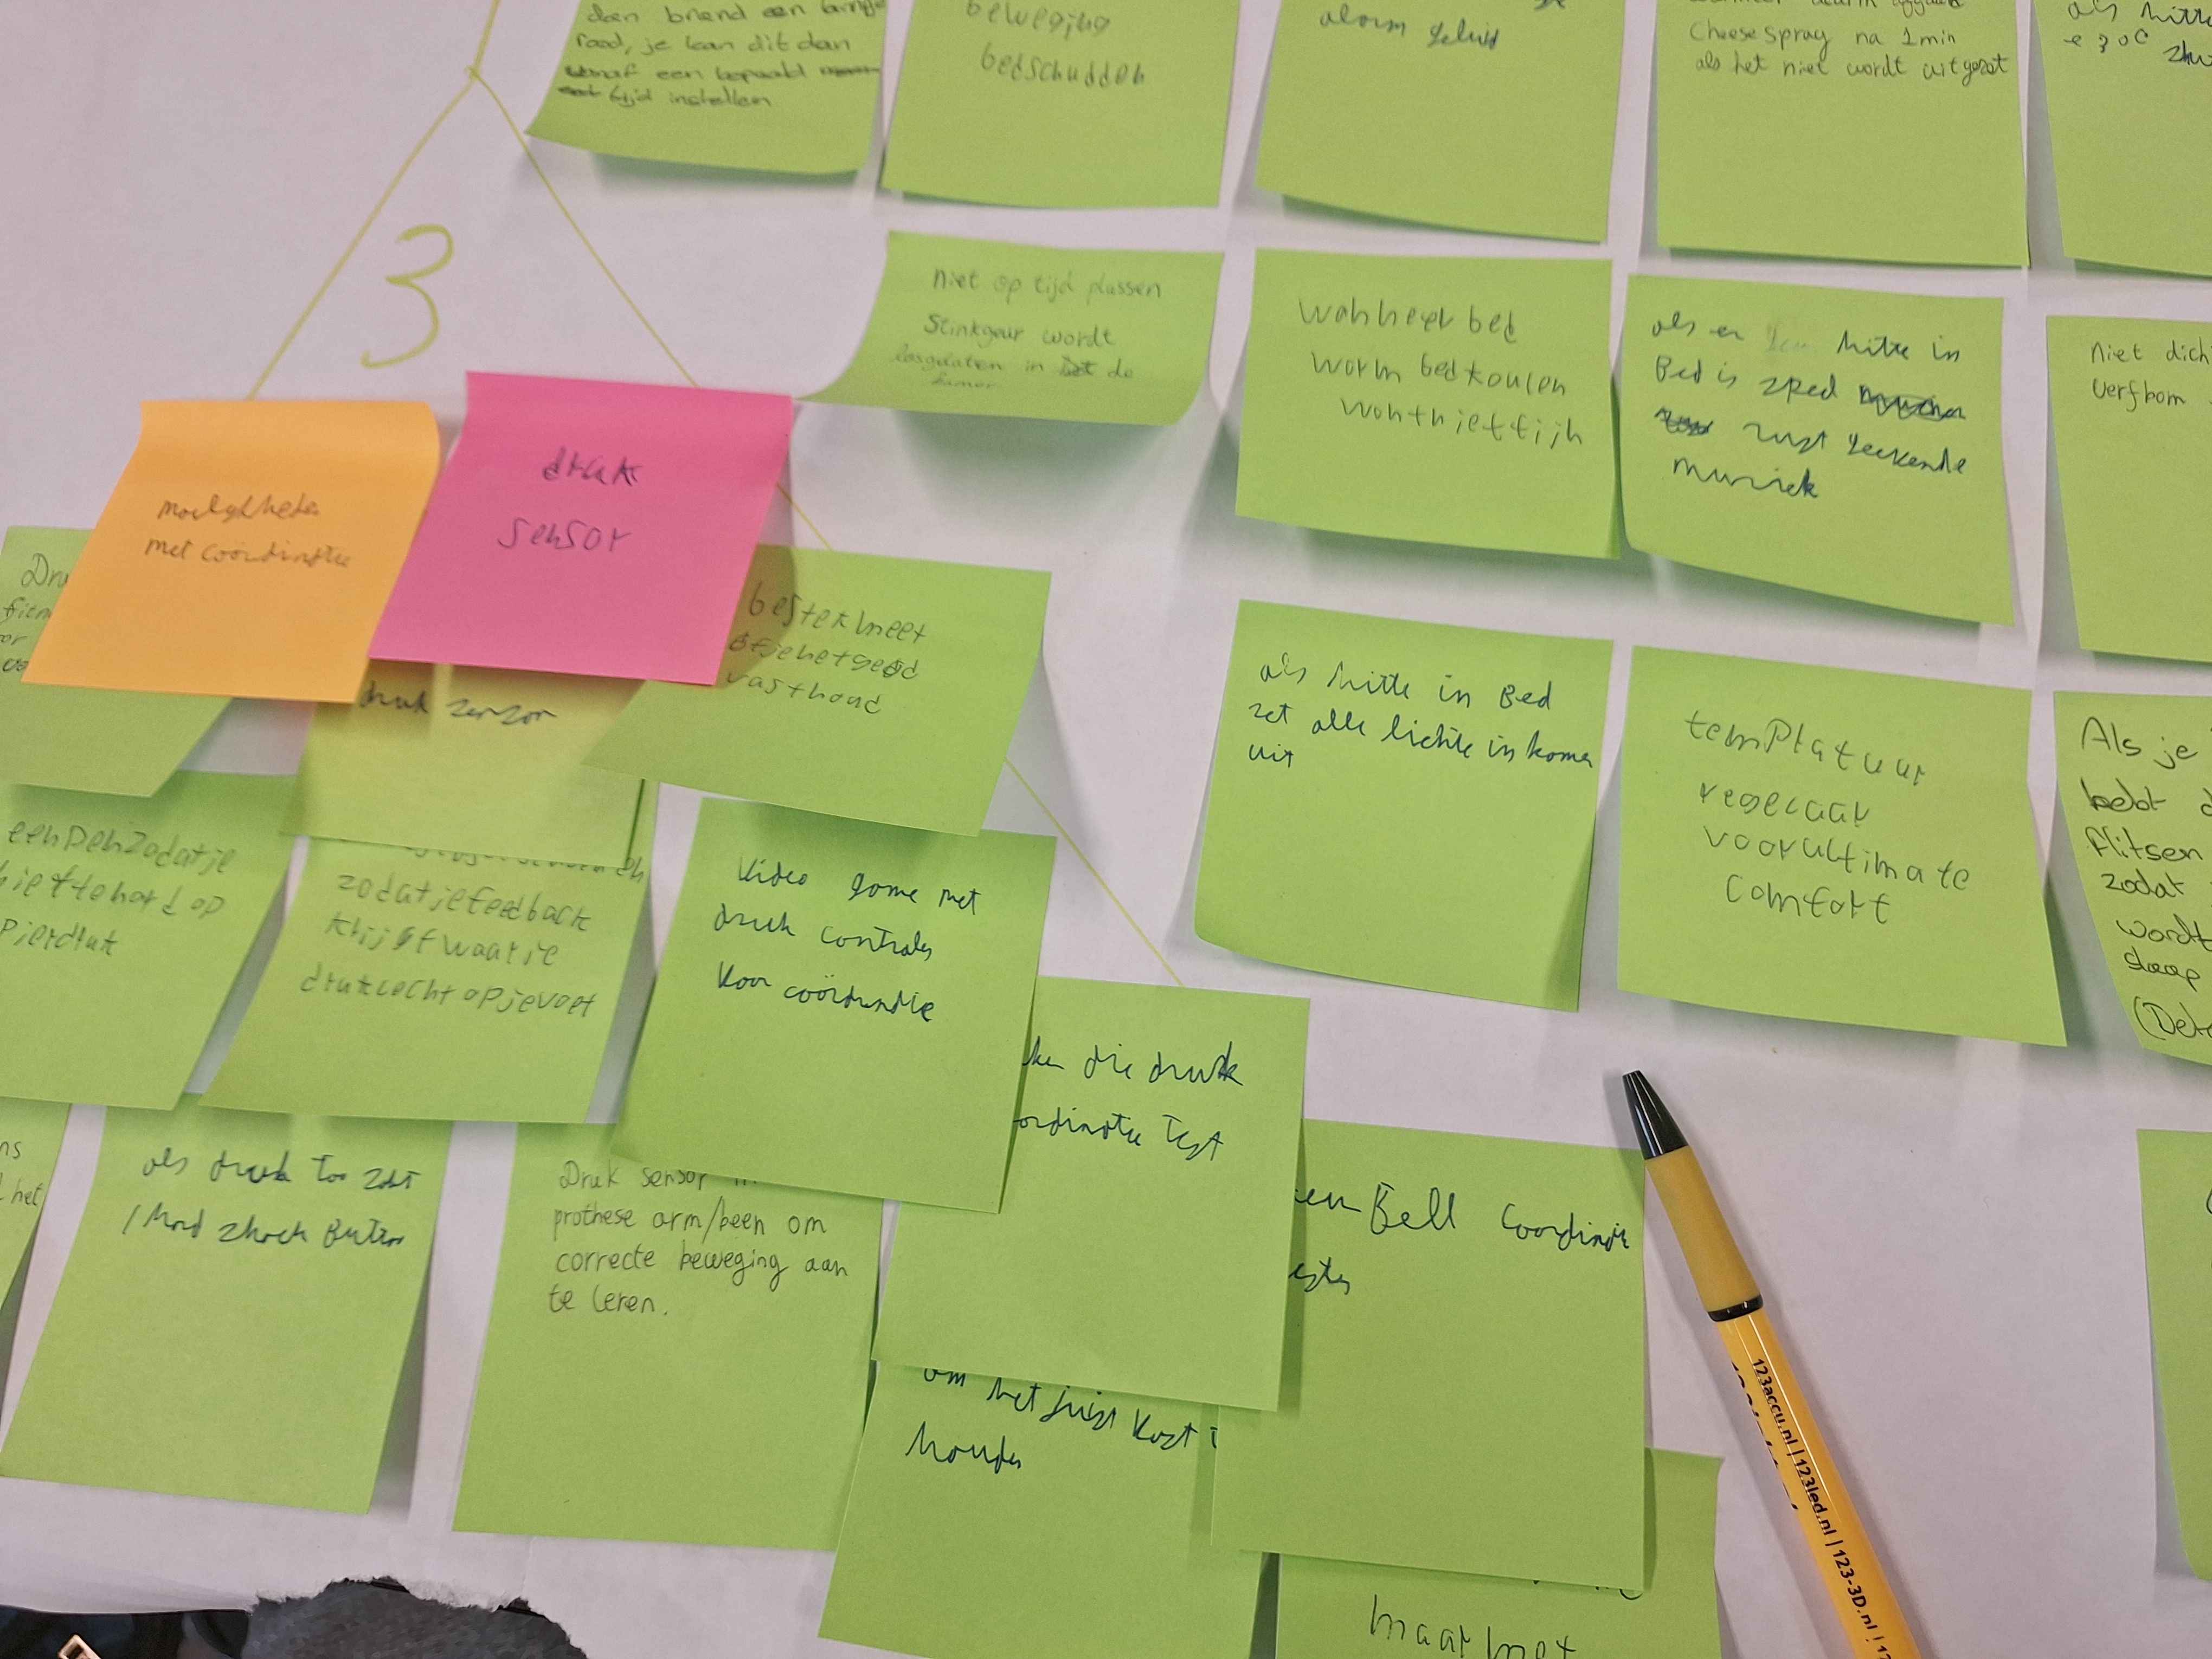 dan brand een lampje
rood, je kan dit dan
vanaf een bepaald
tijd instellen
beweging
bedschudden
alarm geluid
Cheese spray na 1 min
als het niet wordt uitgezet
als hitte
3
niet op tijd plassen
Stinkgeur wordt
losgelaten in de
kamer
wanneer bed
warm bed koulen
want niet fijn
als er hitte in
Bed is speel
rust geevende
muziek
niet dich
verfbom
moeilijkheden
met coördinatie
druk
sensor
Dru
druk sensor
bestek meet
of je het goed
vasthoud
als hitte in Bed
zet alle lichte in kamer
uit
temPratuur
regelaar
voor ultimate
comfort
Als je
hebt
flitsen
zodat
wordt
slaap
(Dete
een pen zodat je
niet te hard op
pier druk
zodat je feedback
krijgt waar je
druk legt op je voet
Video game met
druk controles
voor coördinatie
ken die druk
ordinatie Test
als druk too
/ Hard shock Button
ns
het
Druk sensor in
prothese arm/been om
correcte beweging aan
te leren.
een Bell Coordinati
estes
om het juist vast
Houden
maar met
123accu.nl | 123led.nl | 123-3D.nl |